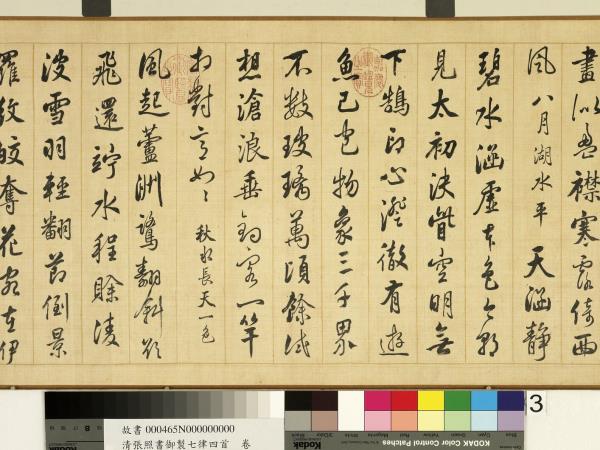 畫似盈襟寒露倚西
風 八月湖水平 天涵靜
碧水涵虛本色今朝
見太初決眥空明無
下鵠印心澄徹有遊
魚已包物象三千界
不數玻璃萬頃餘試
想滄浪垂釣客一竿
相對意如〻 秋水長天一色
風起蘆洲鷺斜欲
飛還竚水程賒凌
波雪羽輕翻節倒景
羅紋皎奪花宛在伊
3
故書 000465N000000000
清張照書御製七律四首 卷
KODAK Color Control Patches
Kodak